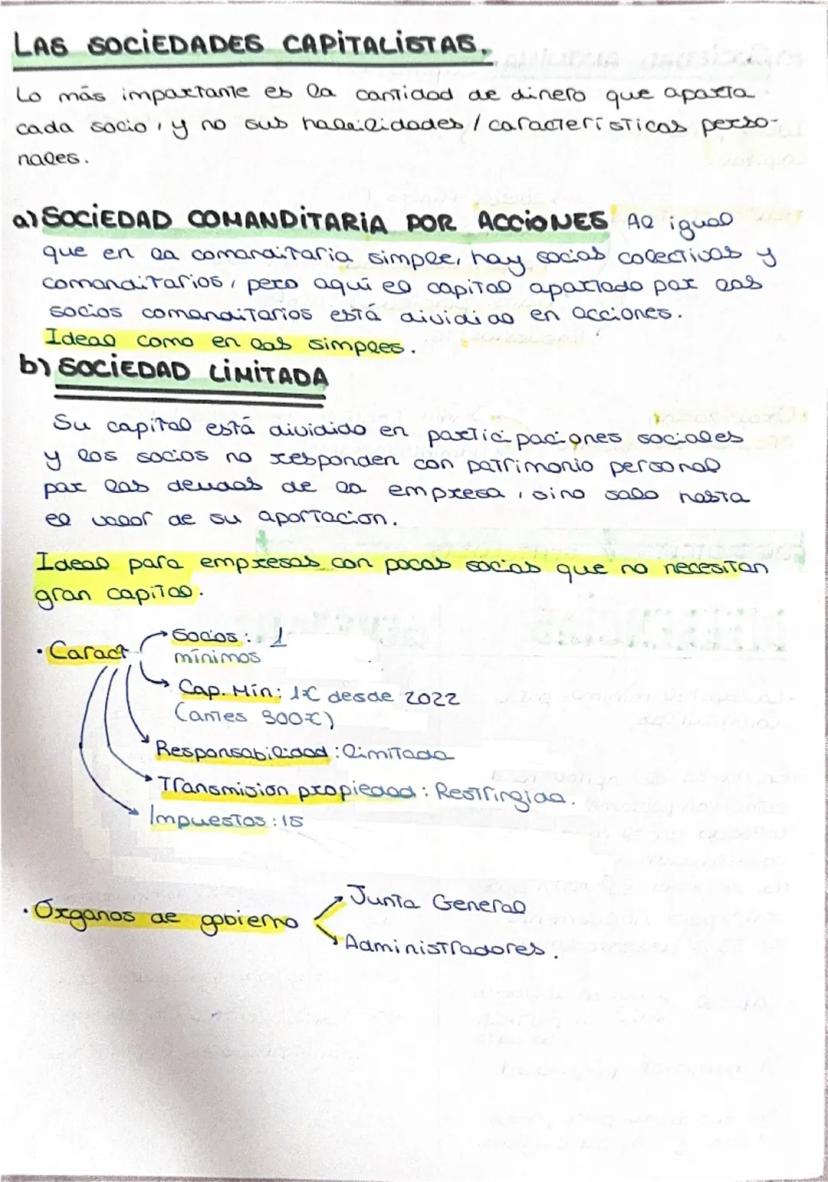 LAS SOCIEDADES CAPITALISTAS.
Lo más importante es la cantidad de dinero que aporta
cada socio, y no sus habilidades / características perso-
nales.
a) SOCIEDAD COMANDITARIA POR ACCIONES Al igual
que en la comanditaria simple, hay socios colectivos y
comanditarios, pero aquí el capital aportado por los
socios comanditarios está dividido en acciones.
Ideal como en las simples.
b) SOCIEDAD LIMITADA
Su capital está dividido en participaciones sociales
y los socios no responden con patrimonio personal
por las deudas de la empresa, sino solo hasta
el valor de su aportacion.
Ideal para empresas con pocos socios que no necesitan
gran capital.
· Caract
Socios: 1
mínimos
Cap. Min: 1€ desde 2022
(antes 300€)
Responsabilidad: limitada
Transmision propiedad: Restringida.
Impuestos: IS
· Órganos de gobierno
Junta General
Administradores.